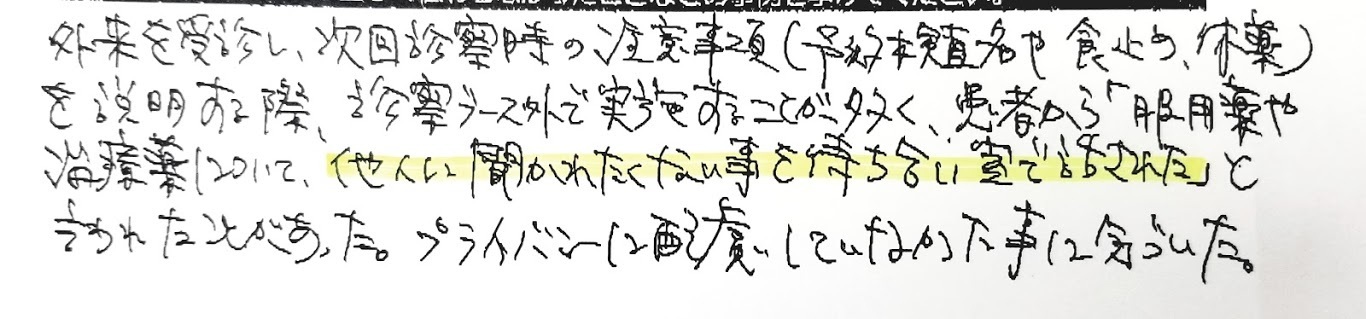 外来を受診し、次回診察時の注意事項(予約検査名や食止め、休薬)
を説明する際、診察ブース外で実施することが多く、患者から「服用薬や
治療薬について、他人に聞かれたくない事を待ち合い室で話された」と
言われたことがあった。プライバシーに配慮していなかった事に気づいた。